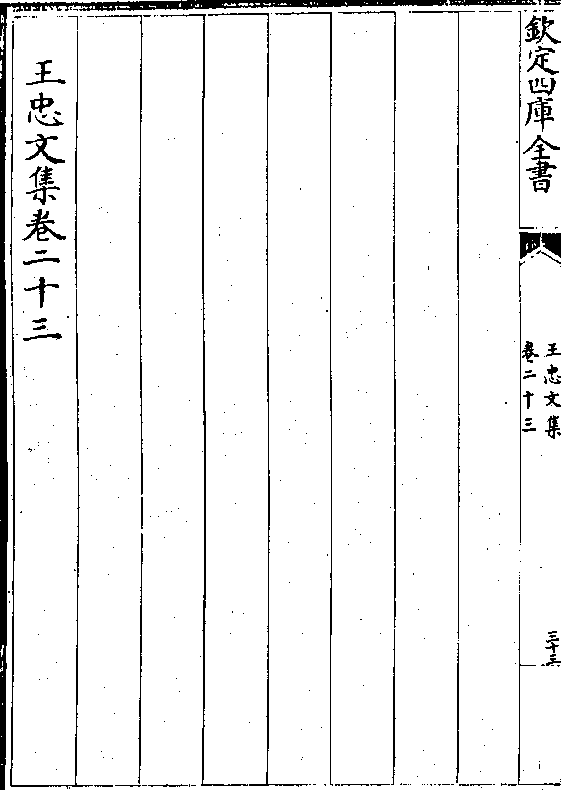 欽定四庫全書
王忠文集
卷二十三
三十三
王忠文集卷二十三